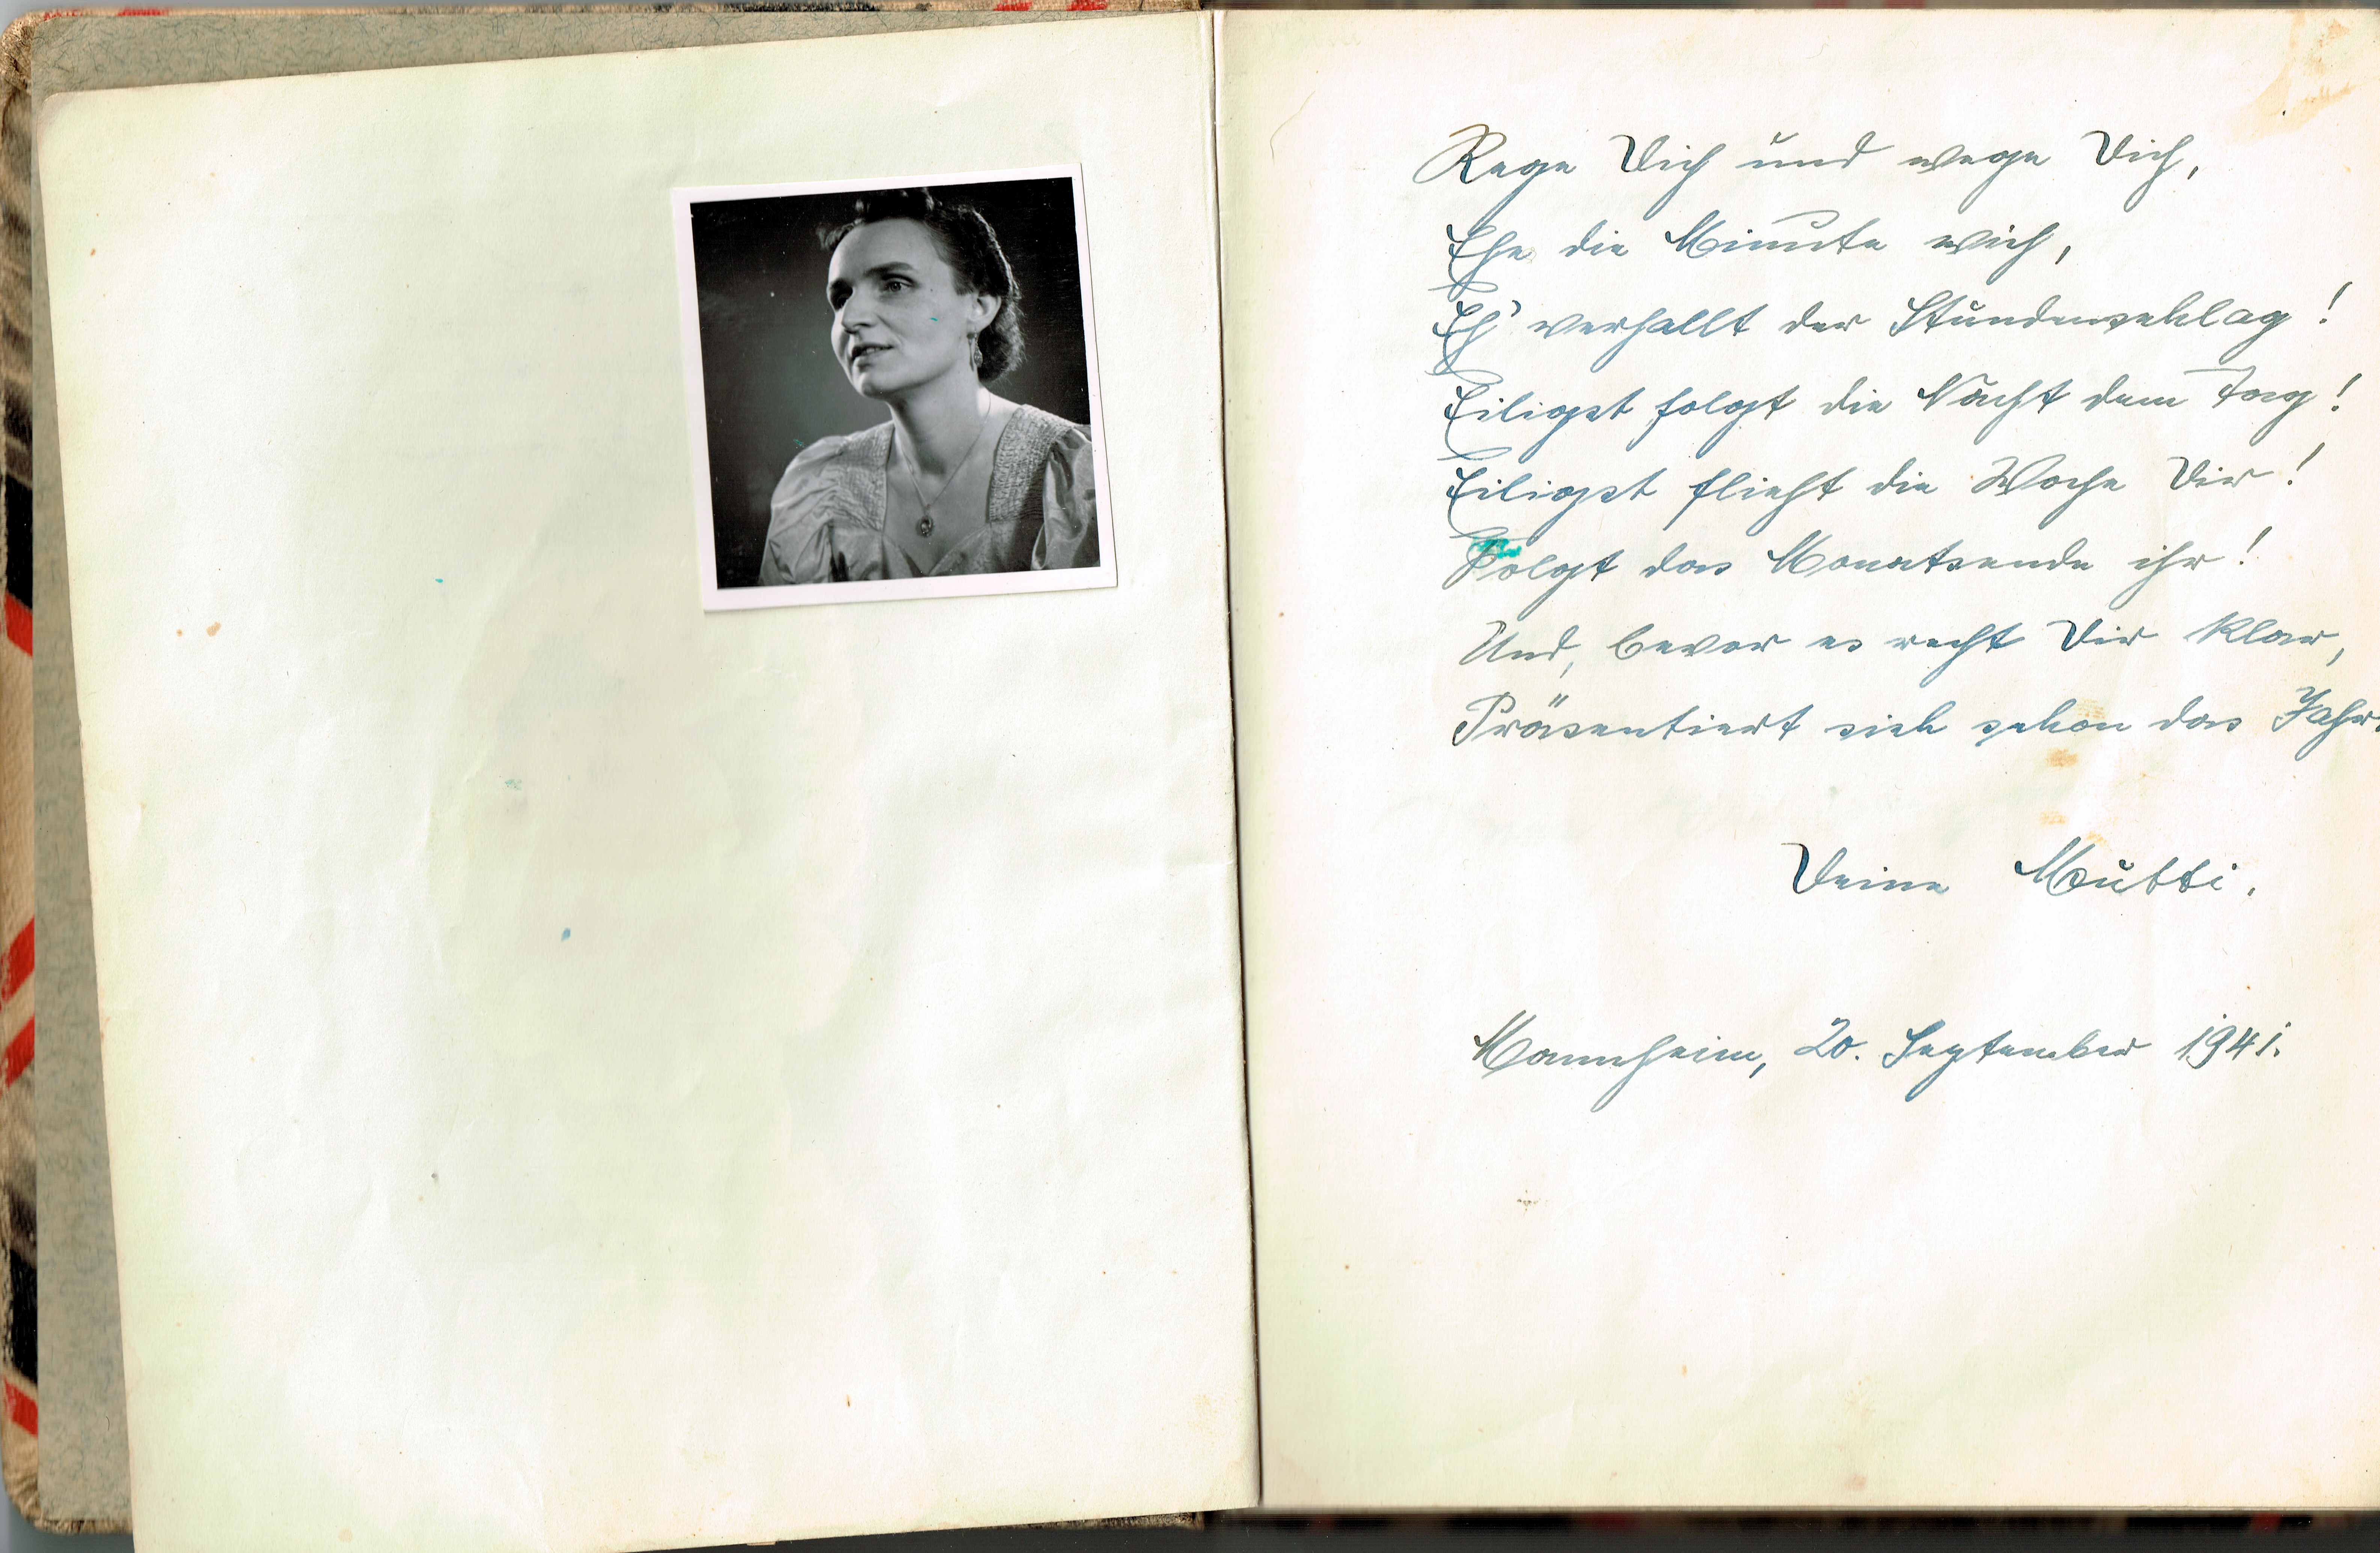 Rege Dich und wege Dich,
Ehe die Minute wich,
Eh' verhallt der Stundenschlag!
Eiligst folgt die Nacht dem Tag!
Eiligst flieht die Woche Dir!
Folgt das Monatsende ihr!
Und, bevor es recht Dir klar,
Präsentiert sich schon das Jahr.
Deine Mutti.
Mannheim, 20. September 1941.